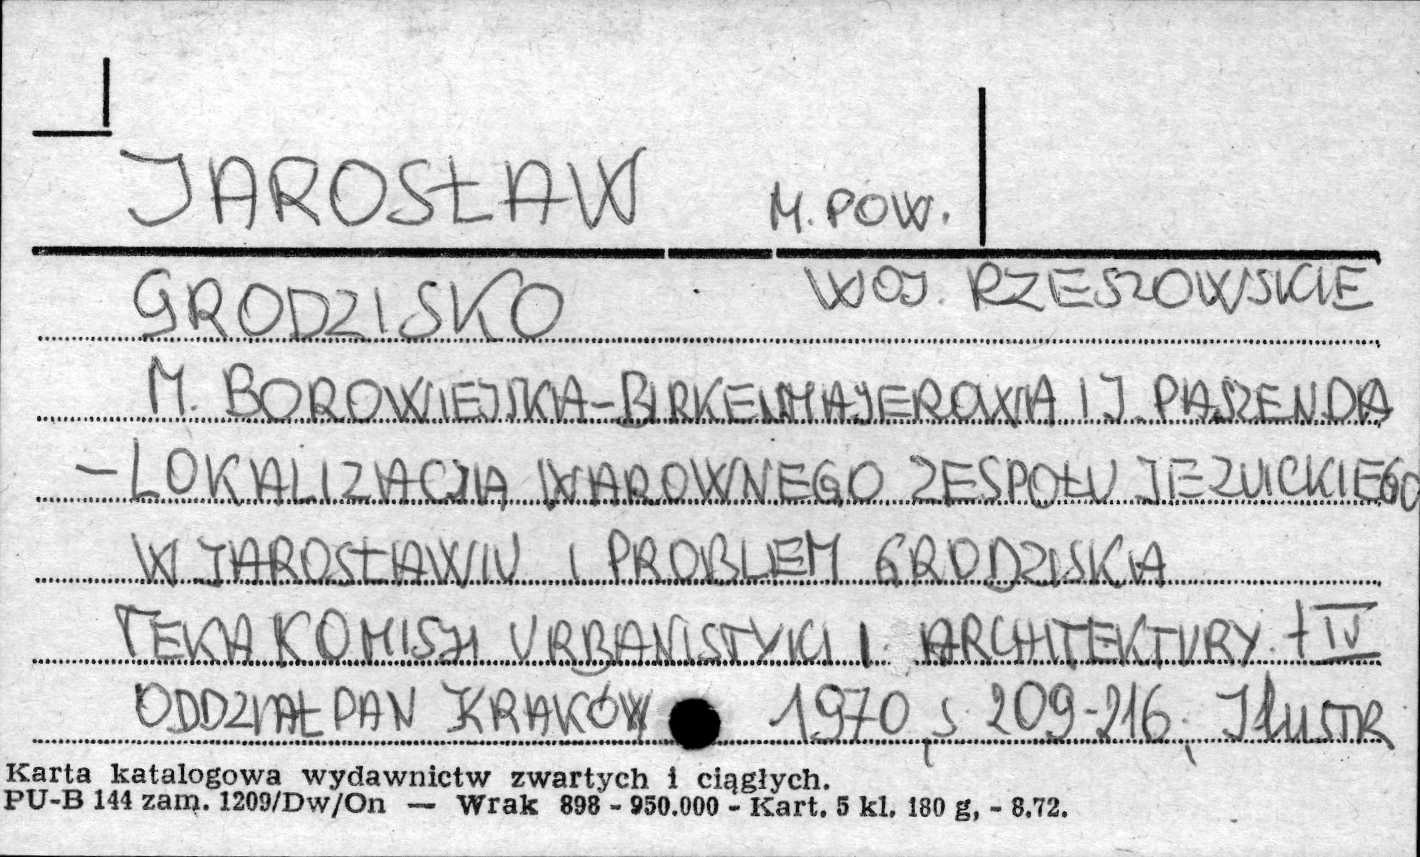 JAROSŁAW M. POW.
GRODZISKO WOJ. RZESZOWSKIE
M. BOROWIEJSKA-BIRKENMAJEROWA I J. PASZENDA
– LOKALIZACJA WAROWNEGO ZESPOŁU JEZUICKIEGO
W JAROSŁAWIU I PROBLEM GRODZISKA
TEKA KOMISJI URBANISTYKI I ARCHITEKTURY. t IV
ODDZIAŁ PAN KRAKÓW 1970, S. 209-216, Ilustr
Karta katalogowa wydawnictw zwartych i ciągłych.
PU-B 144 zam. 1209/Dw/On — Wrak 898 - 950.000 - Kart. 5 kl. 180 g, - 8.72.